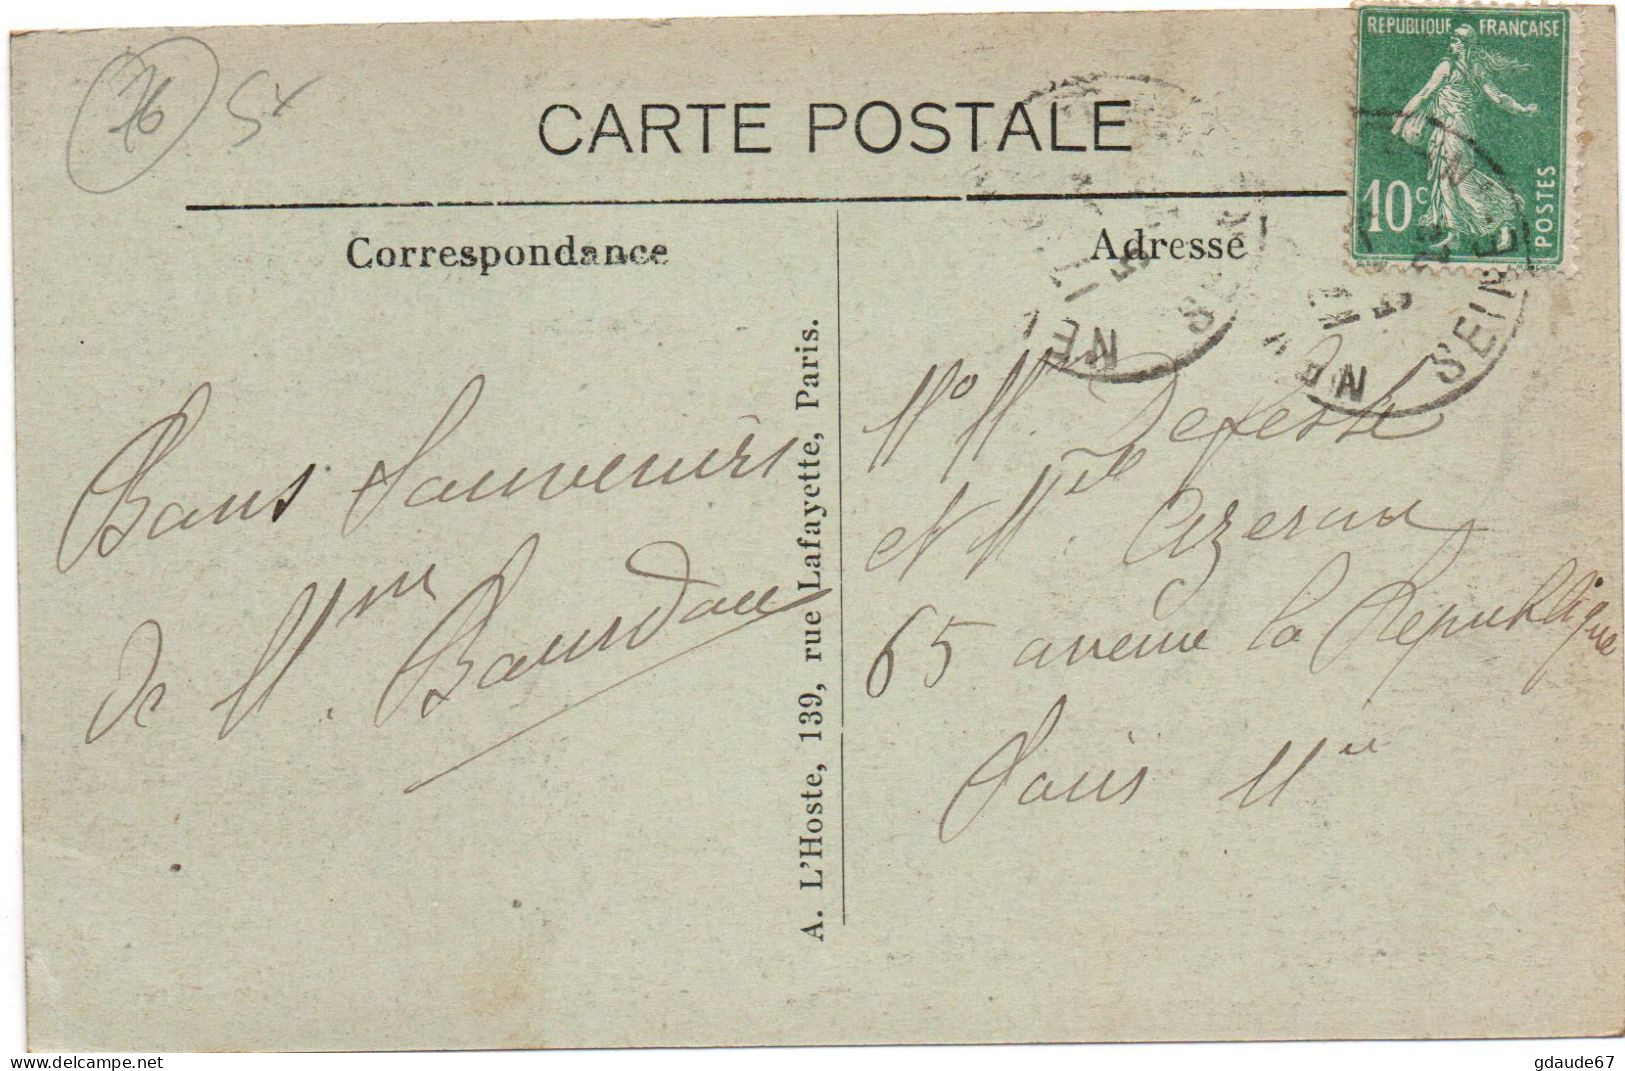 76
5x
CARTE POSTALE
REPUBLIQUE FRANÇAISE
10c
POSTES
Correspondance
Adresse
SEINE
Bons Souvenirs
de Mme Bourdon
A. L'Hoste, 139, rue Lafayette, Paris.
et Mlle
65 avenue la République
Paris 11e
www.delcampe.net
gdaude67